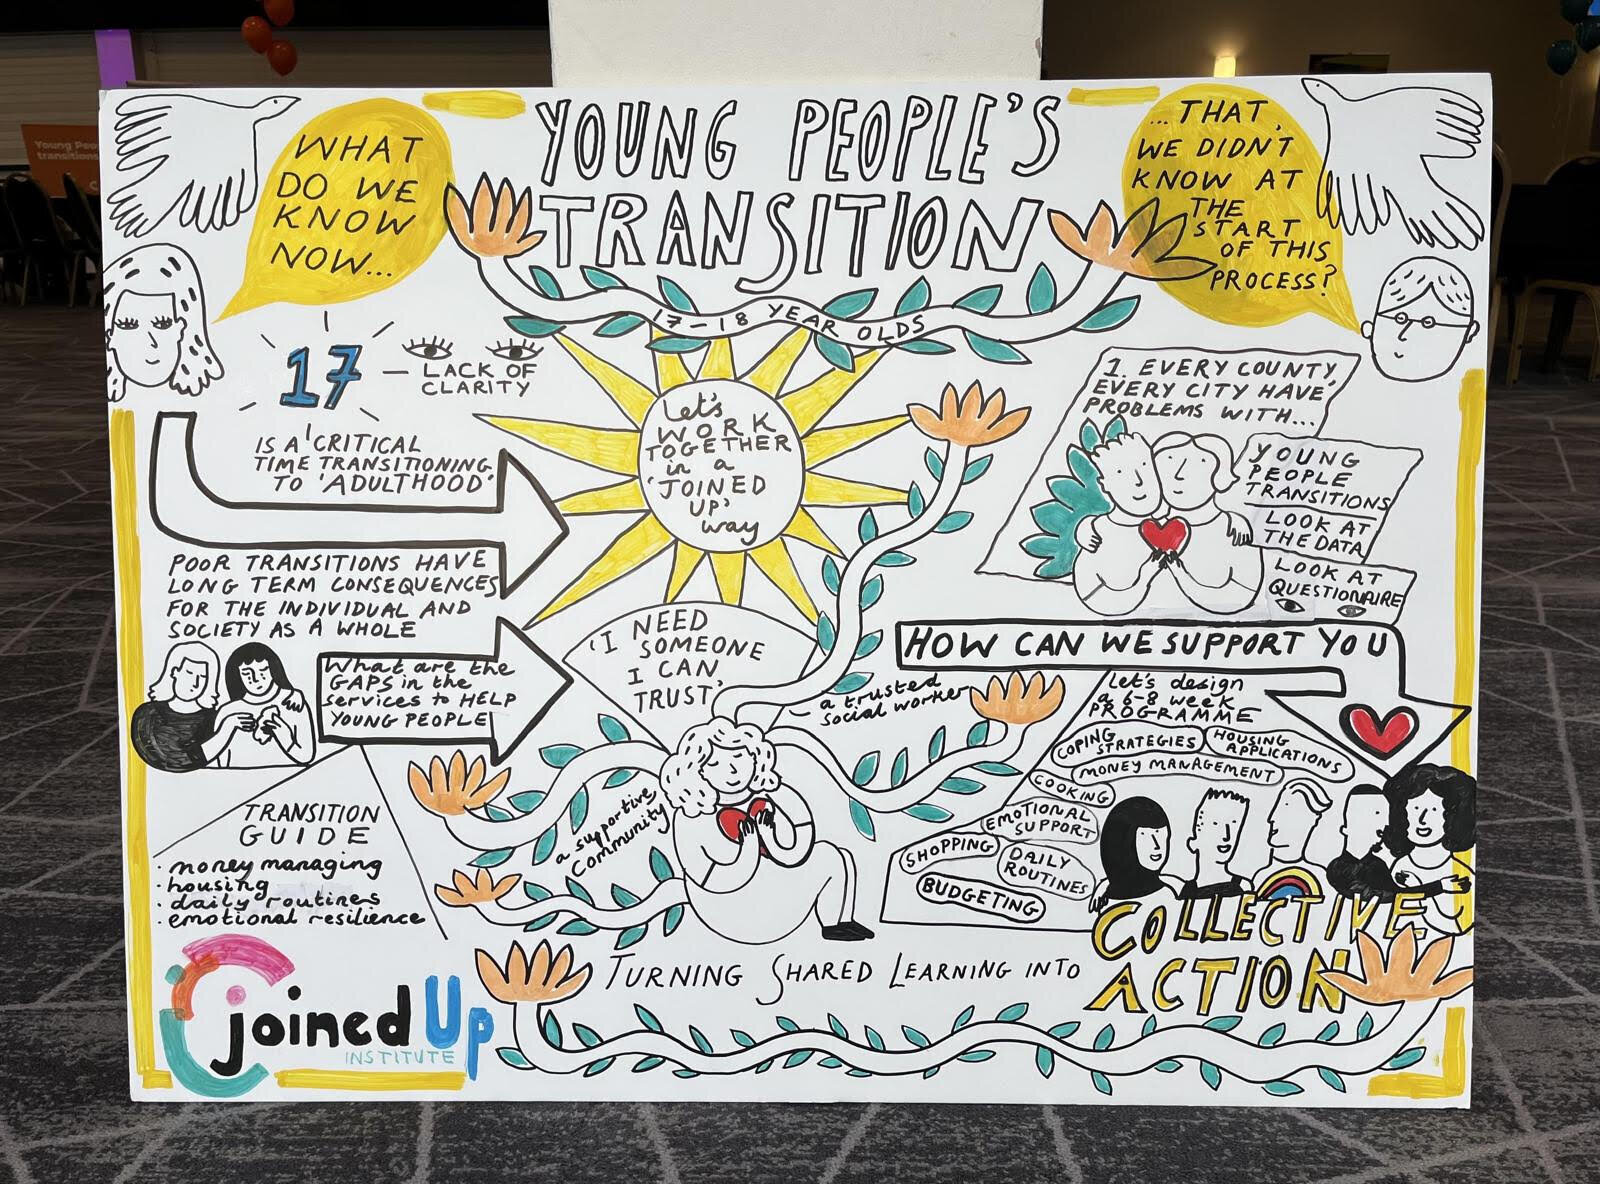 Young Peo
transitions
WHAT
DO WE
KNOW
NOW...
YOUNG PEOPLE'S
TRANSITION
17-18 YEAR OLDS
...THAT
WE DIDN'T
KNOW AT
THE
START
OF THIS
PROCESS?
17 — LACK OF
CLARITY
IS A 'CRITICAL
TIME TRANSITIONING
TO 'ADULTHOOD'
POOR TRANSITIONS HAVE
LONG TERM CONSEQUENCES
FOR THE INDIVIDUAL AND
SOCIETY AS A WHOLE
What are the
GAPS in the
services to HELP
YOUNG PEOPLE
Let's
WORK
TOGETHER
in a
'JOINED
UP'
way
1. EVERY COUNTY,
EVERY CITY HAVE
PROBLEMS WITH...
YOUNG
PEOPLE
TRANSITIONS
LOOK AT
THE DATA
LOOK AT
QUESTIONAIRE
'I NEED
SOMEONE
I CAN
TRUST'
- a trusted
social worker
a supportive
Community
HOW CAN WE SUPPORT YOU
Let's design
a 6-8 week
PROGRAMME
COPING
STRATEGIES
HOUSING
APPLICATIONS
MONEY MANAGEMENT
COOKING
EMOTIONAL
SUPPORT
SHOPPING
DAILY
ROUTINES
BUDGETING
TRANSITION
GUIDE
· money managing
· housing
· daily routines
· emotional resilience
TURNING SHARED LEARNING INTO
COLLECTIVE
ACTION
joined Up
INSTITUTE